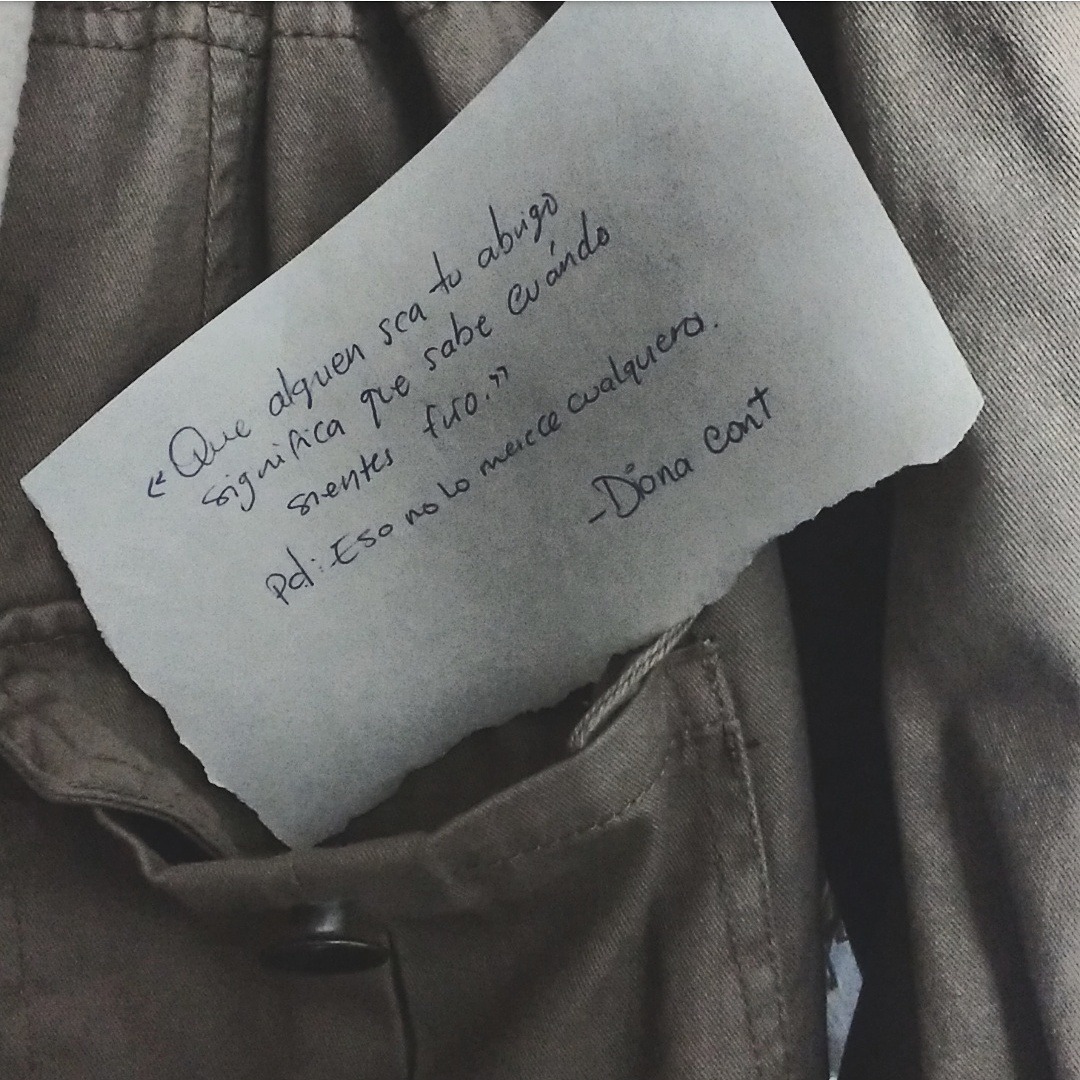 "Que alguien sea tu abrigo
significa que sabe cuándo
sientes frío."
Pd: Eso no lo merece cualquiera.
-Diana Cont